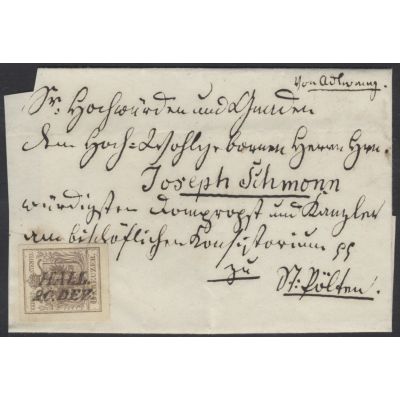 Von Adlwang.
Sr. Hochwürden und Gnaden
dem Hoch-Wohlgebornen Herrn Hrn.
Joseph Schmonn
würdigsten Dompropst und Kanzler
am bischöflichen Konsistorium
zu
St. Pölten.
KREUZER.
HALL.
20. DEZ.